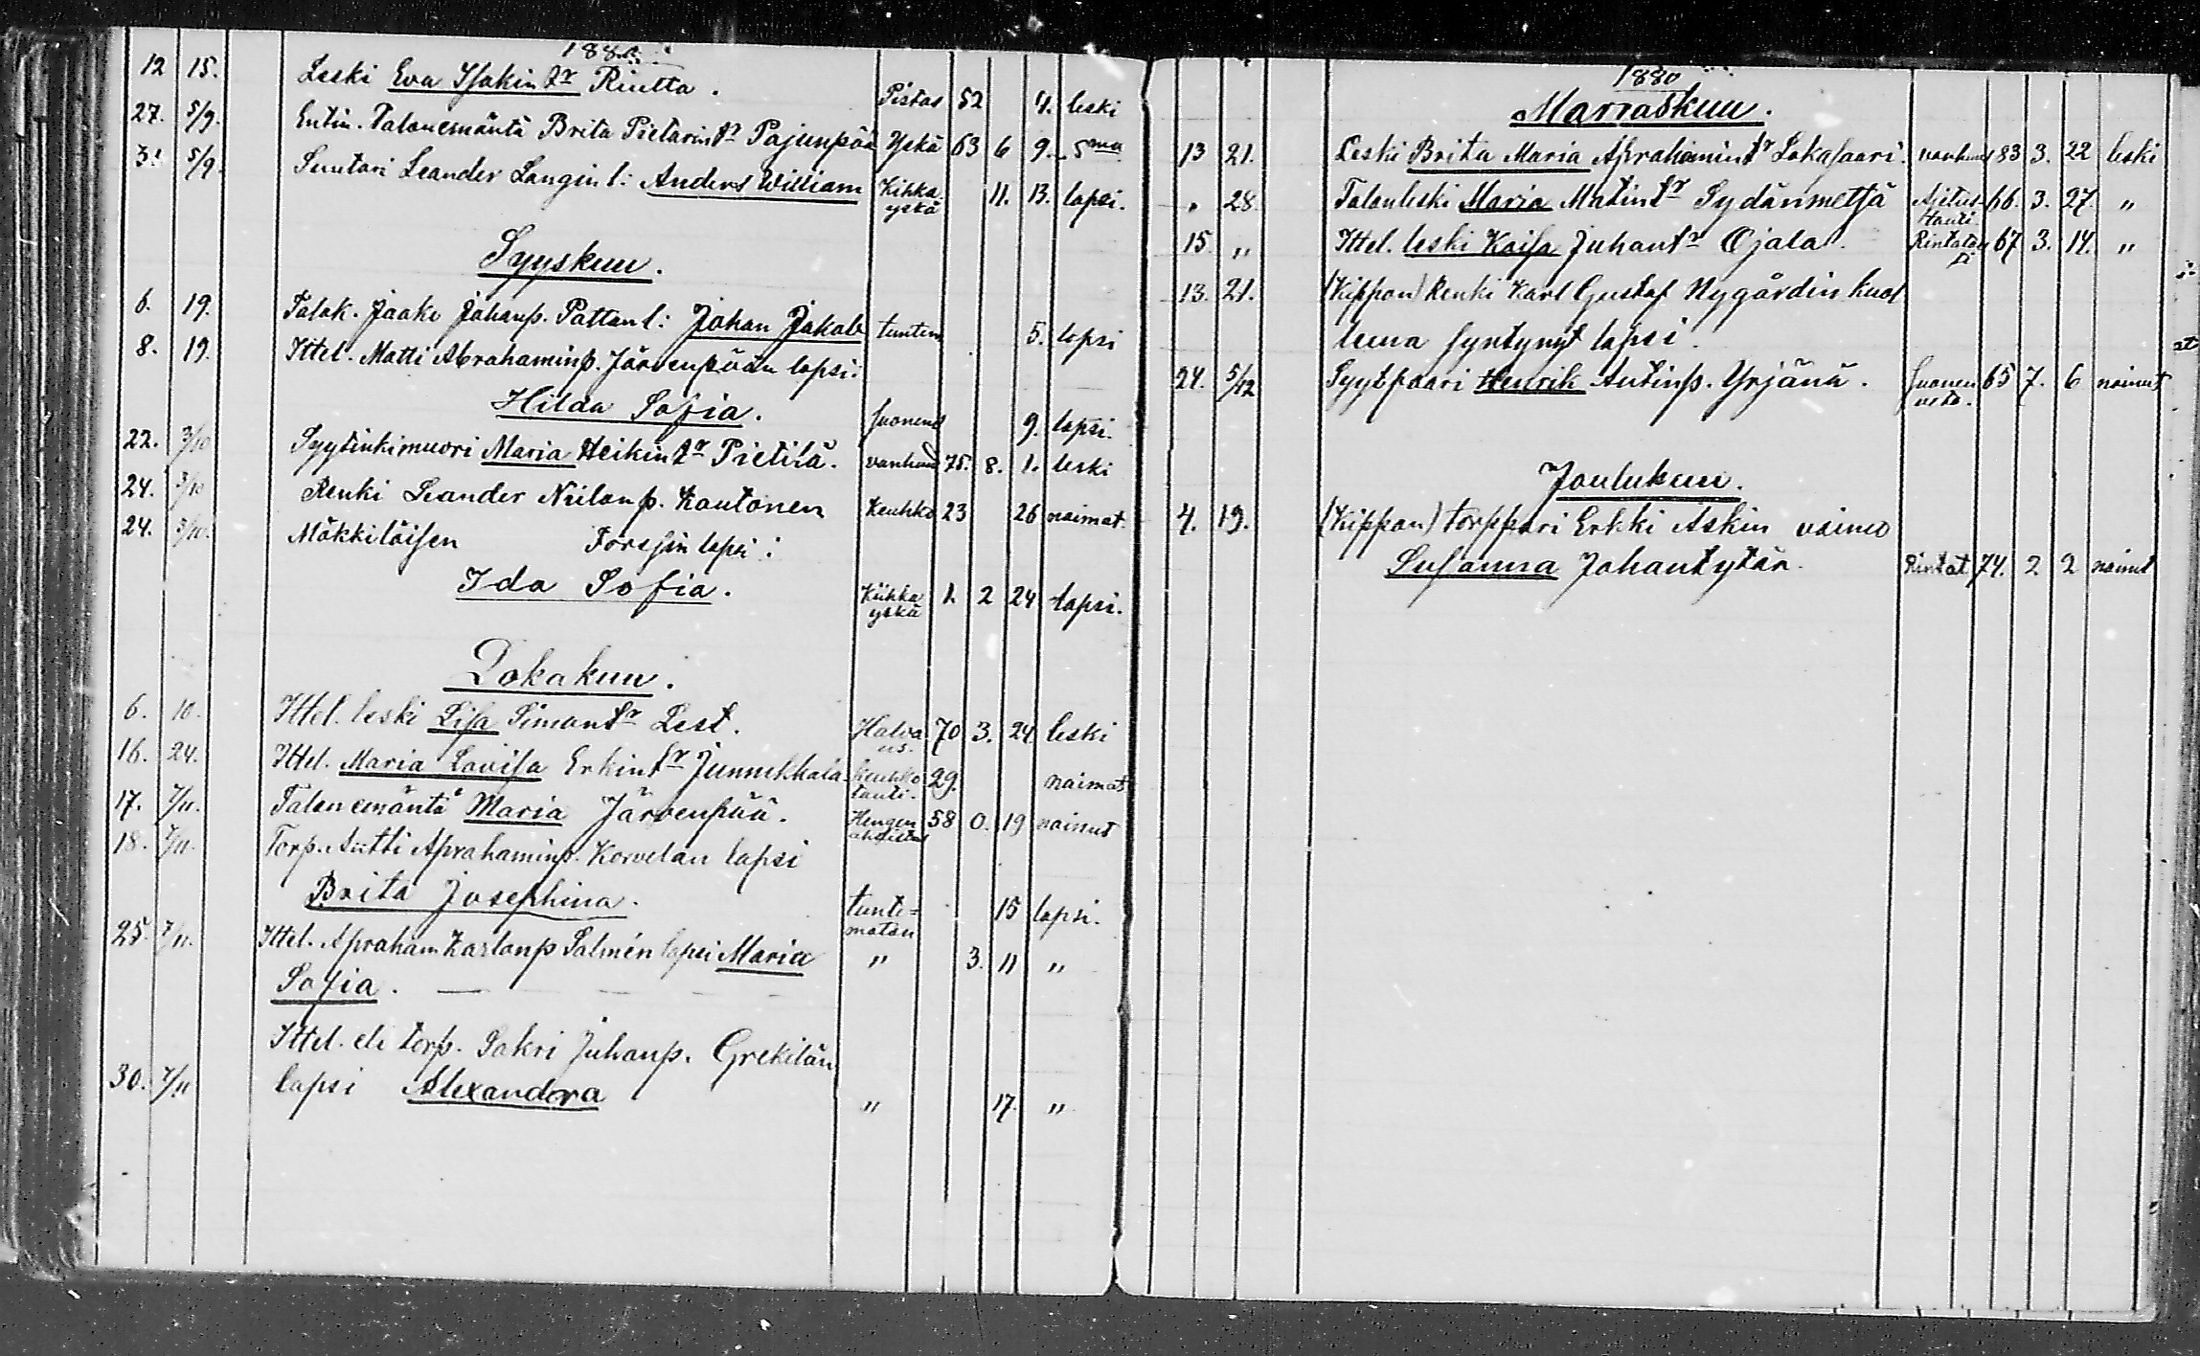 1880
12 15. Leski Eva Isakin tr Riutta. Pistos 52 4. leski
27. 5/9. Entin. Talonemäntä Brita Pietarin tr Pajunpää Yskä 63 6 9.
31 5/9. Suutari Leander Langin l: Anders William Kikka yskä 11. 13. lapsi.
Syyskuu.
6. 19. Talok. Jaako Johanp. Pattan l: Johan Jakob tuntem 5. lapsi
8. 19. Ittel. Matti Abrahaminp. Järvenpään lapsi:
Hilda Sofia. Suonenv 9. lapsi.
22. 3/10 Syytinkimuori Maria Heikin tr Pietilä. vanhuud 75. 8. 1. leski
24. 3/10 Renki Leander Niilonp. Kautonen Keuhko 23 26 naimat.
24. 3/10. Mäkkiläisen Forssin lapsi:
Ida Sofia. Kiikka yskä 1. 2 24 lapsi.
Lokakuu.
6. 10. Ittel. leski Lisa Simon tr Lest. Halva us. 70 3. 24 leski
16. 24. Ittel. Maria Lovisa Erkin tr Junnikkala Keuhko tauti. 29. naimat
17. 7/11. Talonemäntä Maria Järvenpää. Hengen ahdistus 58 0. 19 nainut
18. 7/11. Torp. Antti Aprahaminp. Korvelan lapsi
Brita Josephina. tunte= matou 15 lapsi.
25. 7/11. Ittel. Apraham Karlonp Salmén lapsi Maria " 3. 11 "
Sofia.
Ittel. eli torp. Sakri Juhanp. Grekilän
30. 7/11 lapsi Alexandra " 17. "
1880
Marraskuu.
13 21. Leski Brita Maria Aprahamin tr Lakasaari. vanhuus 83 3. 22 leski
" 28. Talonleski Maria Matin tr Sydänmetsä Ajetus tauti. 66. 3. 27. "
15. " Ittel. leski Kaisa Juhan tr Ojala. Rintatau ti 67 3. 14. "
13. 21. (Kippon) Renki Karl Gustaf Nygårdin kuol
leena syntynyt lapsi.
24. 5/12 Syytpaari Henrik Antinp. Yrjänä. Suonen veto. 65 7. 6 nainut
Joulukuu.
4. 19. (Kippon) torppari Erkki Askin vaimo
Susanna Johantytär. Rintat 74. 2 2 nainut